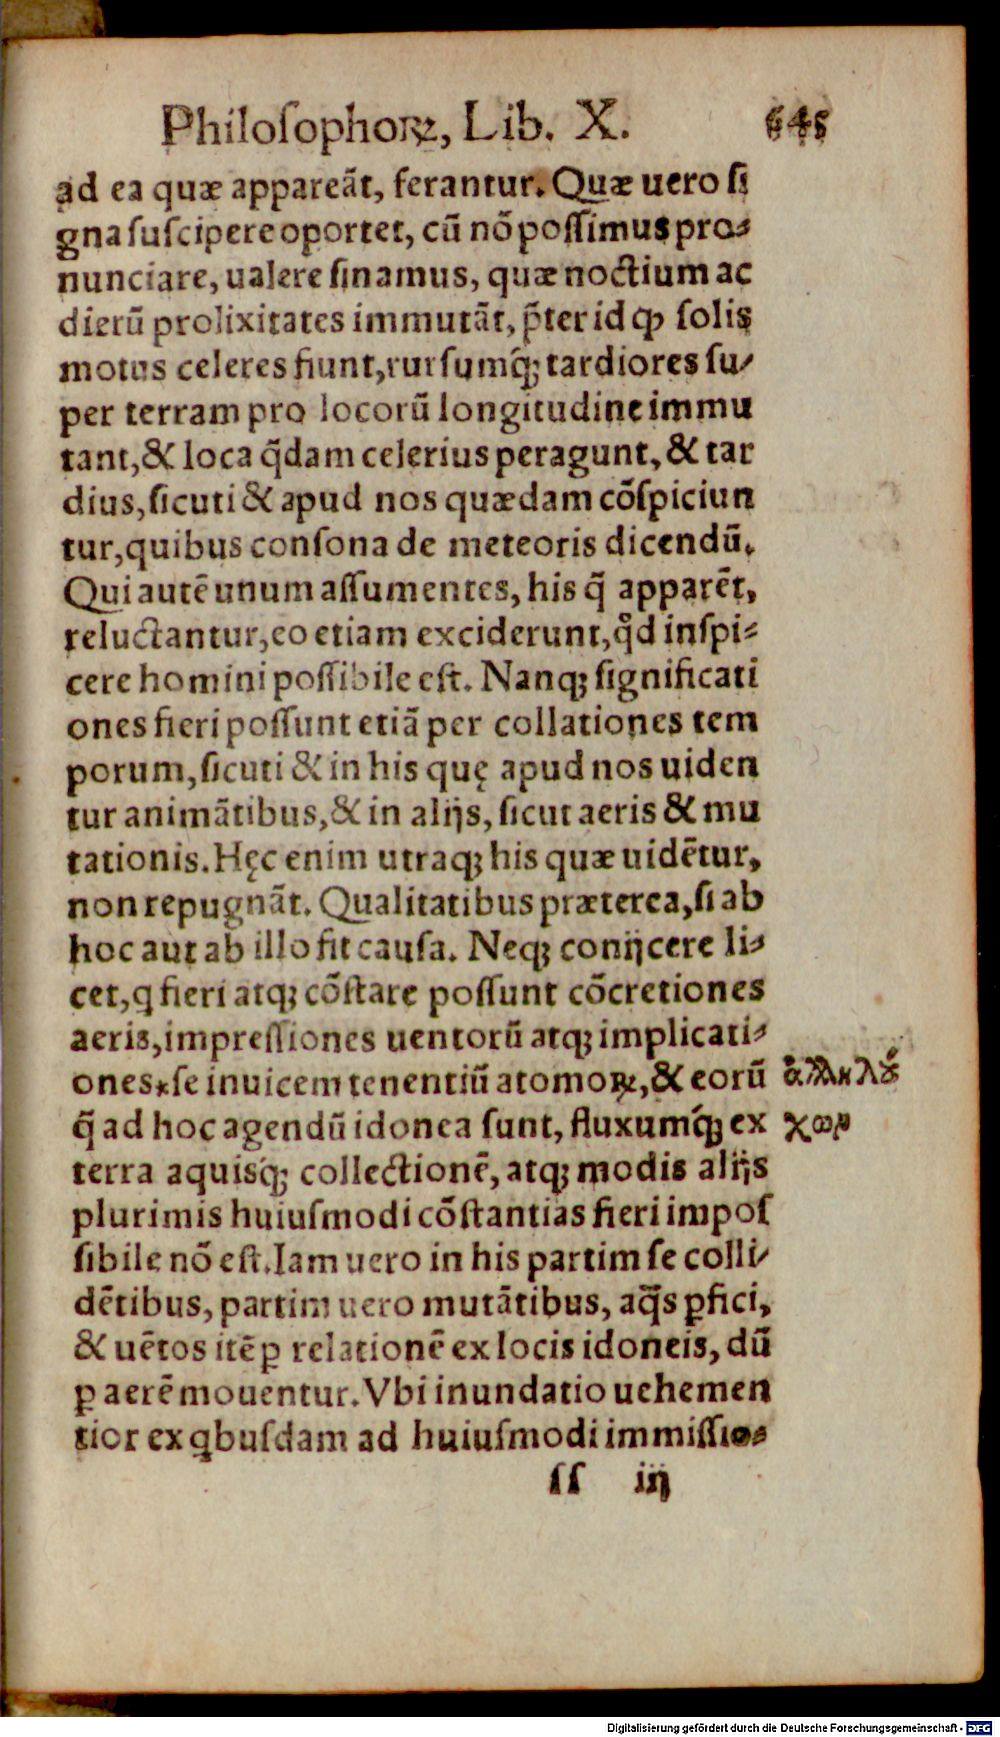 Philoſophoꝝ, Lib. X. 645
ad ea quæ appareãt, ferantur. Quæ uero ſi
gna ſuſcipere oportet, cũ nõ poſſimus pro⸗
nunciare, ualere ſinamus, quæ noctium ac
dierũ prolixitates immutãt, p̃ter id qꝫ ſolis
motus celeres fiunt, rurſumq́ꝫ tardiores ſu⸗
per terram pro locorũ longitudine immu
tant, & loca q̃dam celerius peragunt, & tar
dius, ſicuti & apud nos quædam cõſpiciun
tur, quibus conſona de meteoris dicendũ.
Qui autẽ unum aſſumentes, his q̃ apparẽt,
reluctantur, eo etiam exciderunt, qd̓ inſpi⸗
cere homini poſſibile eſt. Nanqꝫ ſignificati
ones fieri poſſunt etiã per collationes tem
porum, ſicuti & in his quę apud nos uiden
tur animãtibus, & in alijs, ſicut aeris & mu
tationis. Hęc enim utraqꝫ his quæ uidẽtur,
non repugnãt. Qualitatibus præterea, ſi ab
hoc aut ab illo fit cauſa. Neqꝫ conijcere li⸗
cet, ꝙ fieri atqꝫ cõſtare poſſunt cõcretiones
aeris, impreſſiones uentorũ atqꝫ implicati⸗
ones*ſe inuicem tenentiũ atomoꝝ, & eorũ
q̃ ad hoc agendũ idonea ſunt, fluxumq́ꝫ ex
terra aquisq́ꝫ collectionẽ, atqꝫ modis alijs
plurimis huiuſmodi cõſtantias fieri impoſ
ſibile nõ eſt. Iam uero in his partim ſe colli⸗
dẽtibus, partim uero mutãtibus, aq̃s ꝑfici,
& uẽtos itẽ ꝑ relationẽ ex locis idoneis, dũ
ꝑ aerẽ mouentur. Vbi inundatio uehemen
tior ex qbuſdam ad huiuſmodi immiſſio⸗
ſſ iij
Digitalisierung gefördert durch die Deutsche Forschungsgemeinschaft - DFG